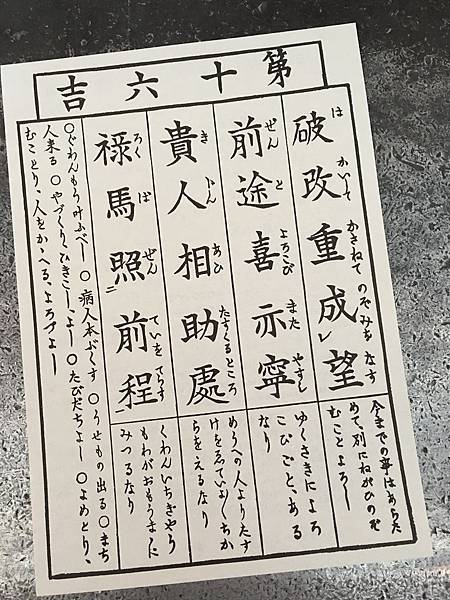 第十六吉
破改重成望
は かいて かさねて のぞみを なす
今までの事はあらた
めて、別にねがひのぞ
むことよろし
前途喜亦寧
ぜん と よろこび また やすし
ゆくさきによろ
こびごと、ある
なり
貴人相助處
き にん あひ たすくるところ
めうへの人よりたす
けをゑていよ〱ちか
らをえるなり
禄馬照前程
ろく ば ぜん ていを てらす
くわんいちぎやう
もわがおもうまゝに
みつるなり
〇ぐわんもう叶ふべし 〇病人本ぷくす 〇うせもの出る 〇まち
人来る 〇やづくり、ひきこし、よし 〇たびだちよし 〇よめとり、
むことり、人をかゝへる、よろづよし